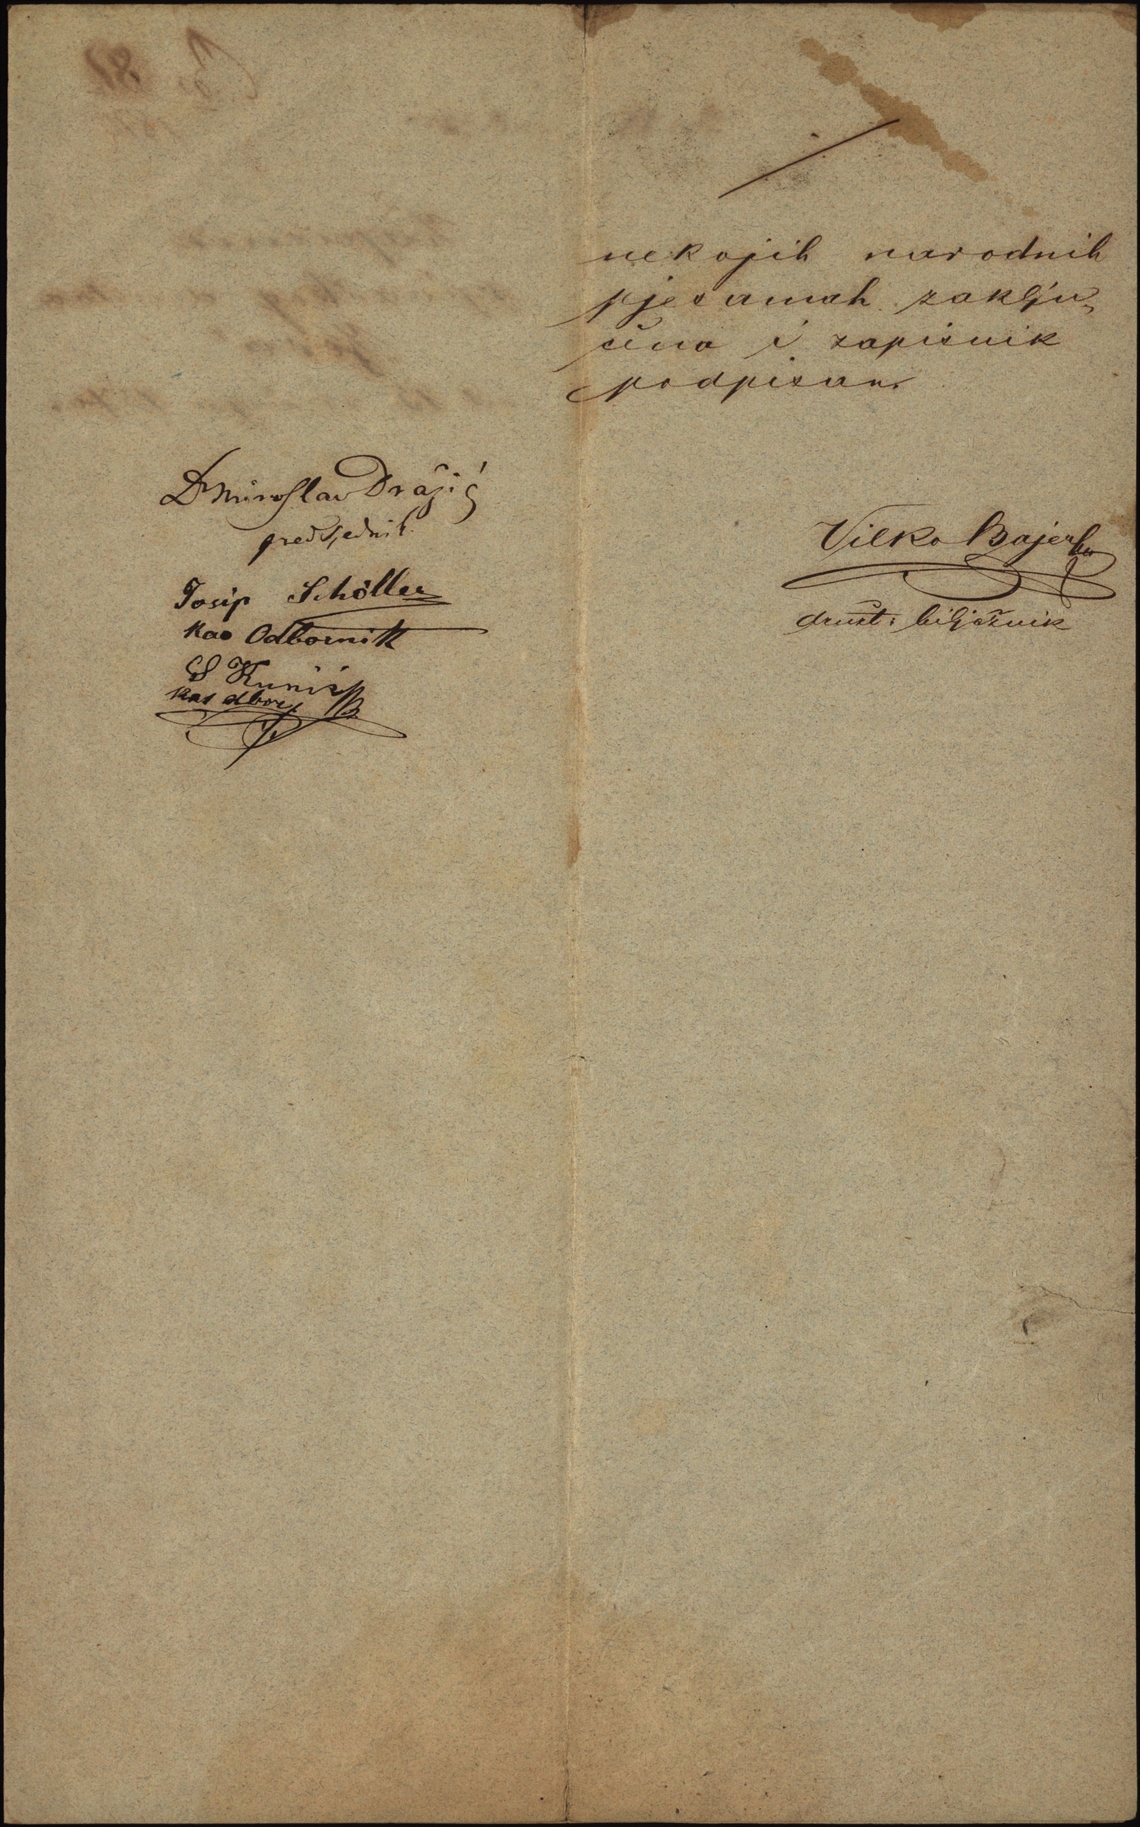 nekojih narodnih
pjesamah zaklju„
čena i zapisnik
podpisan.
Dr Miroslav Dražić
predsjednik
Josip Schöller
kao Odbornik
Kunić
kao odbor
Vilko Bajer
družt: biližnik